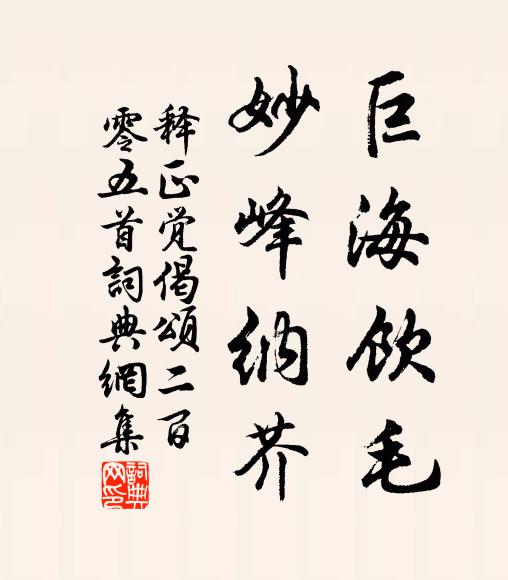 巨海飲毛
妙峰纳芥
释正觉偈頌二百
零五首詞典網集
詞典網印